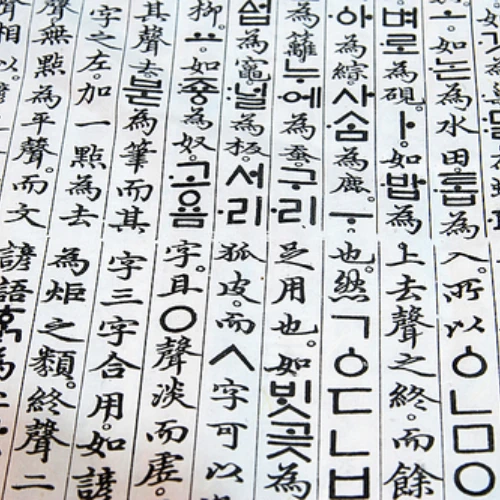 ㅗ。如논為水田。톱為
벼로為硯。ㅏ。如밥為
아為綜。사ᄉᆞᆷ為鹿。ㅜ
為籬。누에為蚕。구리
ᅀᅥᆸ為竈。널為板。서리
柳。ㅛ。如죵為奴。고욤
其聲去。붇為筆而其
字之左。加一點為去
聲。無點為平聲。而文
入。所以ㆁㄴㅁㅇ
上去聲之終。而餘
也。然ㄱㆁㄷㄴㅂ
足用也。如ᄇᆡᆺ곶為
狐皮。而ㅅ字可以
字。且ㅇ聲淡而虛。
字三字合用。如諺
為炬之類。終聲二
諺語